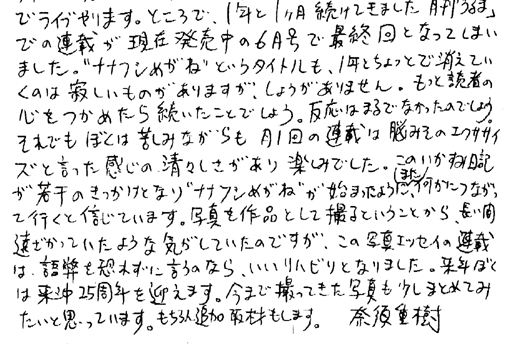 でライブやります。ところで、1年と1ヶ月続けてきました 月刊うるま
での連載が現在発売中の6月号で最終回となってしまい
ました。"ナナフシめがね"というタイトルも、1年とちょっとで消えてい
くのは寂しいものがありますが、しょうがありません。もっと読者の
心をつかめたら続いたことでしょう。反応はまるでなかったのでしょう。
それでもぼくは苦しみながらも月1回の連載は脳みそのエクササイ
ズと言った感じの清々しさがあり楽しみでした。このいかね日記
が若干のきっかけとなり"ナナフシめがね"が始まったように、また何かにつながっ
て行くと信じています。写真を作品として撮るということから、長い間
遠ざかっていたような気がしていたのですが、この写真エッセイの連載
は、語弊を恐れずに言うのなら、いいリハビリとなりました。来年ぼく
は来沖25周年を迎えます。今まで撮ってきた写真も少しまとめてみ
たいと思っています。もちろん追加取材もします。 奈須重樹